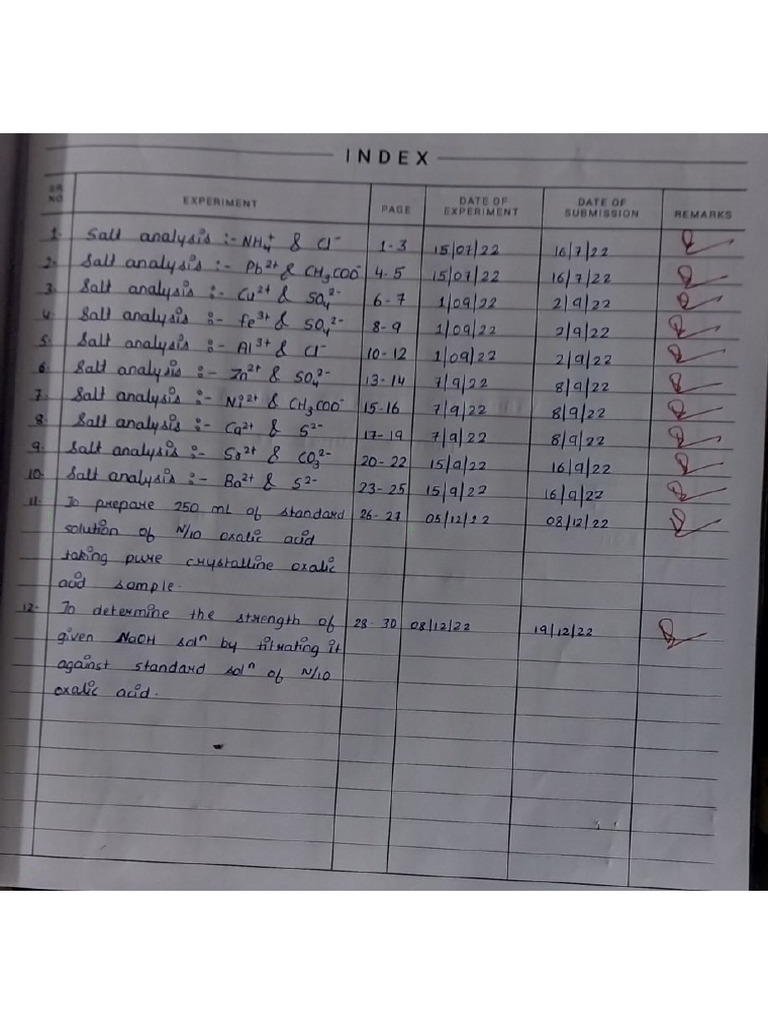 INDEX
SR. NO. EXPERIMENT PAGE DATE OF EXPERIMENT DATE OF SUBMISSION REMARKS
1. Salt analysis :- NH₄⁺ & Cl⁻ 1-3 15/07/22 16/7/22
2. Salt analysis :- Pb²⁺ & CH₃COO⁻ 4-5 15/07/22 16/7/22
3. Salt analysis :- Cu²⁺ & SO₄²⁻ 6-7 1/09/22 2/9/22
4. Salt analysis :- Fe³⁺ & SO₄²⁻ 8-9 1/09/22 2/9/22
5. Salt analysis :- Al³⁺ & Cl⁻ 10-12 1/09/22 2/9/22
6. Salt analysis :- Zn²⁺ & SO₄²⁻ 13-14 7/9/22 8/9/22
7. Salt analysis :- Ni²⁺ & CH₃COO⁻ 15-16 7/9/22 8/9/22
8. Salt analysis :- Ca²⁺ & S²⁻ 17-19 7/9/22 8/9/22
9. Salt analysis :- Sr²⁺ & CO₃²⁻ 20-22 15/9/22 16/9/22
10. Salt analysis :- Ba²⁺ & S²⁻ 23-25 15/9/22 16/9/22
11. To prepare 250 mL of standard 26-27 05/12/22 08/12/22
solution of N/10 oxalic acid
taking pure crystalline oxalic
acid sample.
12. To determine the strength of 28-30 08/12/22 19/12/22
given NaOH solⁿ by titrating it
against standard solⁿ of N/10
oxalic acid.